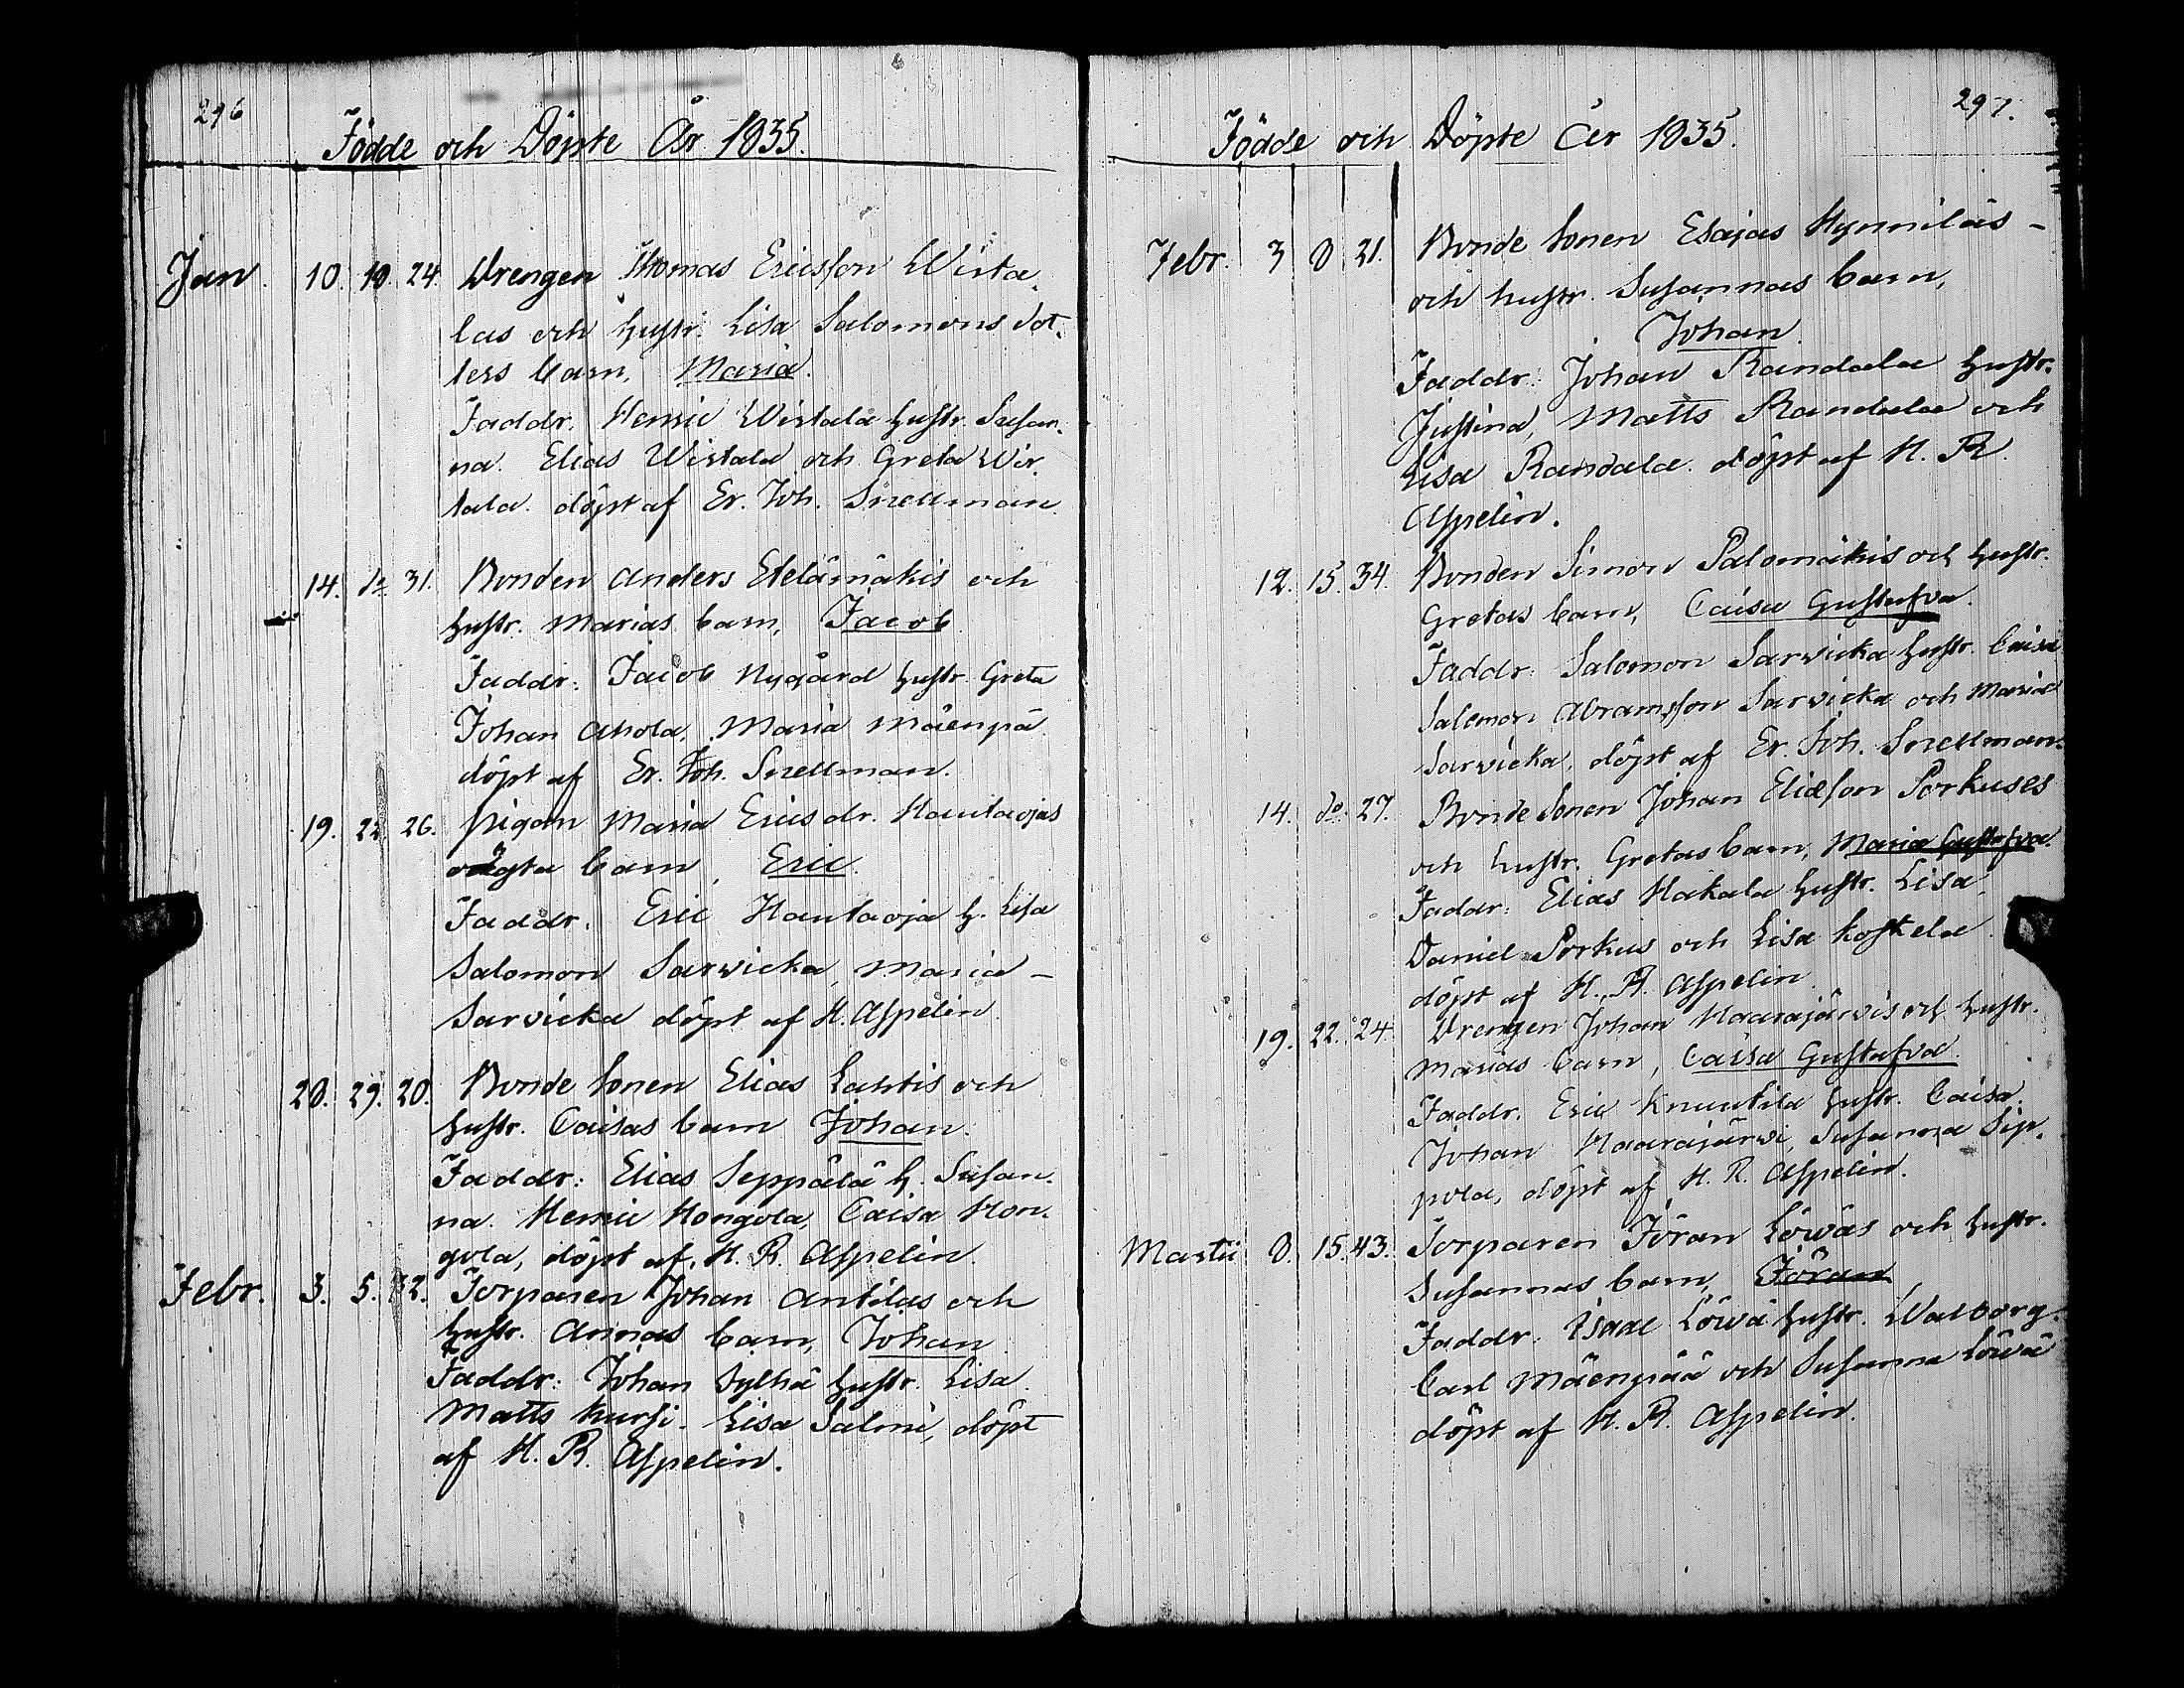 296
Födde och Döpte År 1835.
Jan. 10. 10. 24. Drengen Thomas Ericsson Wirta-
las och hustr. Lisa Salomons dot-
ters barn, Maria.
Faddr. Henric Wirtala hustr. Susan-
na. Elias Wirtala och Greta Wir-
tala. döpt af Er. Joh. Snellman
14. do 31. Bonden Anders Etelämäkis och
hustr. Marias barn, Jacob
Faddr: Jacob Nygård hustr. Greta
Johan Ahola, Maria Mäenpä
döpt af Er. Joh. Snellman.
19. 22. 26. Pigan Maria Ericsdr. Hautaojas
oägta barn, Eric.
Faddr. Eric Hautaoja h. Lisa
Salomon Sarvicka, Maria -
Sarvicka döpt af H. Aspelin
28. 29. 20. Bonde Sonen Elias Lahtis och
hustr. Caisas barn Johan.
Faddr: Elias Seppälä h. Susan-
na. Henric Hongola, Caisa Hon-
gola, döpt af H. R. Aspelin.
Febr. 3. 5. 32. Torparen Johan Antilas och
hustr. Annas barn, Johan
Faddr: Johan Sylhä hustr. Lisa
Matts Kursi. Lisa Salmi, döpt
af H. R. Aspelin.
297.
Födde och Döpte År 1835.
Febr. 3 8 21. Bonde Sonen Esajas Hynniläs -
och hustr. Susannas barn,
Johan
Faddr: Johan Randala hustr.
Justina, Matts Randala och
Lisa Randala. döpt af H. R.
Aspelin.
12. 15. 34. Bonden Simon Palomäkis och hustr.
Gretas barn, Caisa Gustafva.
Faddr: Salomon Sarvicka hustr. Caisa
Salomon Abramsson Sarvicka och Maria
Sarvicka, döpt af Er. Joh. Snellman.
14. do 27. Bonde Sonen Johan Eliasson Porkuses
och hustr. Gretas barn, Maria Gustafva.
Faddr: Elias Hakala hustr. Lisa,
Daniel Porkus och Lisa Koskela
döpt af H. R. Aspelin
19. 22. 24. Drengen Johan Haarajärvis och hustr.
Marias barn, Caisa Gustafva.
Faddr. Eric Knuutila hustr. Caisa.
Johan Haarajärvi, Susanna Sip-
pola, döpt af H. R. Aspelin.
Martii 8. 15. 43. Torparen Jöran Löwäs och hustr.
Susannas barn, Jöran
Faddr. Isaac Löwä hustr. Walborg.
Carl Mäenpää och Susanna Löwä
döpt af H. R. Aspelin.